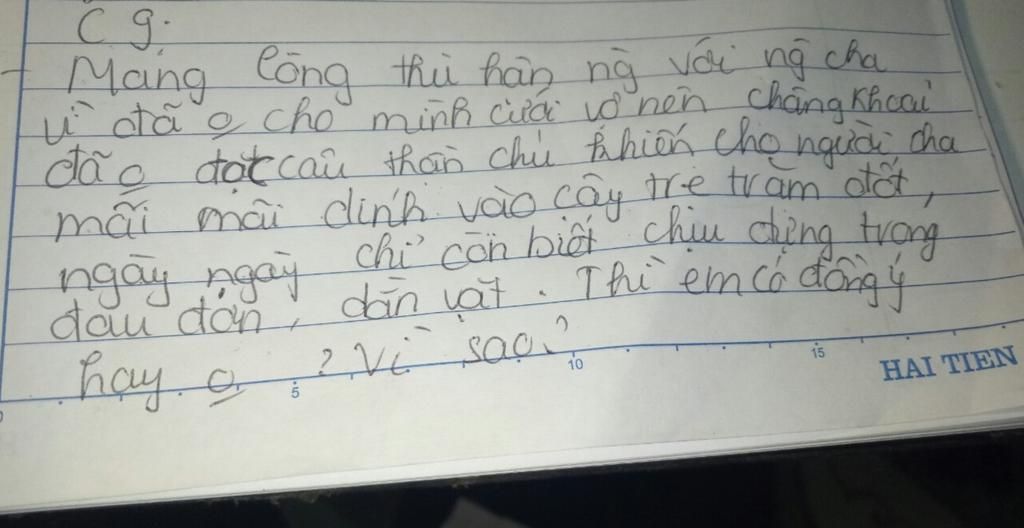 C 9.
- Mang lòng thù hận ng với ng cha
vì đã o cho mình cưới vợ nên chàng khoai
đã o đọc câu thần chú khiến cho người cha
mãi mãi dính vào cây tre trăm đốt,
ngày ngày chỉ còn biết chịu đựng trong
đau đớn, dằn vặt. Thì em có đồng ý
hay o ? Vì sao?
5 10 15
HAI TIEN